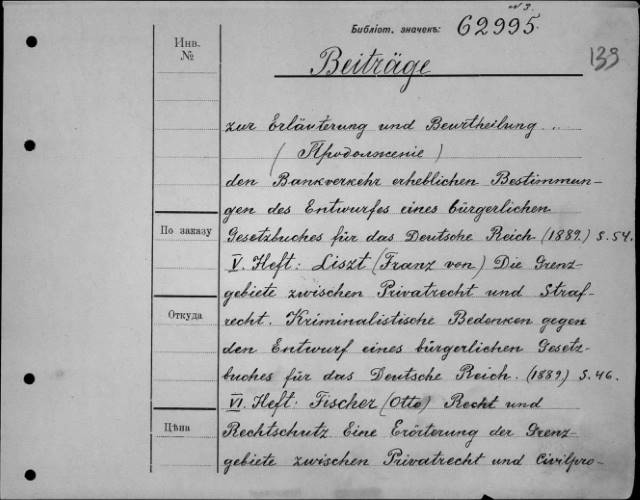 № 3.
Библіот. значекъ: 62995.
139
Инв.
№
Beiträge
zur Erläuterung und Beurtheilung ..
(Продолженіе)
den Bankverkehr erheblichen Bestimmun-
gen des Entwurfes eines bürgerlichen
По заказу
Gesetzbuches für das Deutsche Reich. (1889.) S. 54.
V. Heft: Liszt (Franz von) Die Grenz-
gebiete zwischen Privatrecht und Straf-
Откуда
recht. Kriminalistische Bedenken gegen
den Entwurf eines bürgerlichen Gesetz-
buches für das Deutsche Reich. (1889.) S. 46.
VI. Heft: Fischer (Otto) Recht und
Цѣна
Rechtschutz. Eine Erörterung der Grenz-
gebiete zwischen Privatrecht und Civilpro-